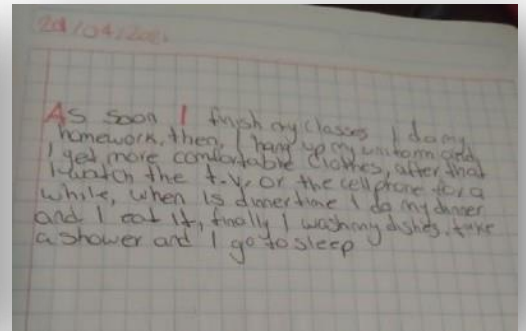 As soon I finish my classes I do my
homework, then, I hang up my uniform and
I get more comfortable clothes, after that
I watch the t.v, or the cellphone for a
while, when is dinner time I do my dinner
and I eat it, finally I wash my dishes, take
a shower and I go to sleep